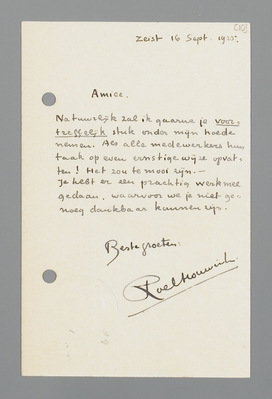 [10]
Zeist 16 Sept. 1925.
Amice.
Natuurlijk zal ik gaarne je voor-
treffelijk stuk onder mijn hoede
nemen. Als alle medewerkers hun
taak op even ernstige wijze opvat-
ten! Het zou te mooi zijn. —
Je hebt er een prachtig werk mee
gedaan, waarvoor we je niet ge-
noeg dankbaar kunnen zijn.
Beste groeten:
Roel Houwink